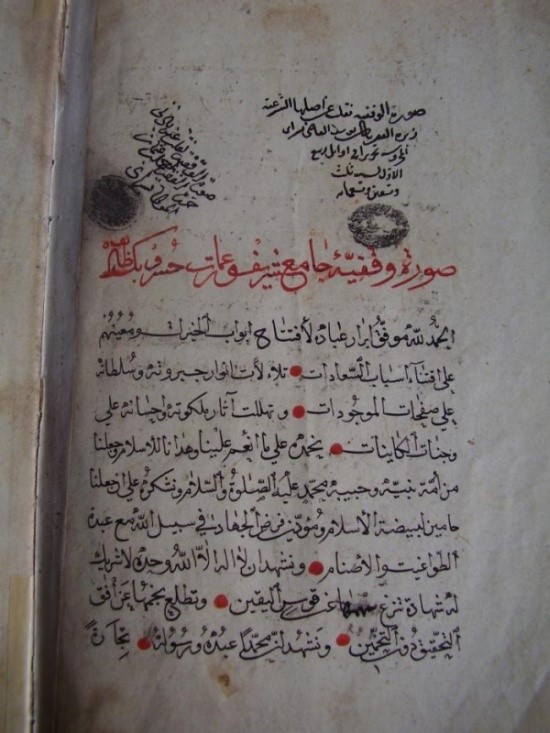 صورة الوقفية نقلت عن اصلها الشرعية
الاول لسنة ثلث
وتسعين وتسعمائة
صورة وقفية جامع شريف وعمارت خسرو بك
الحمد لله موفق ابرار عباده لافتتاح ابواب الخيرات ومعينهم
على اقتناء اسباب السعادات تلألأت انوار جبروته وسلطانه
على صفحات الموجودات وتهللت آثار ملكوته واحسانه على
وجنات الكاينات نحمده على ما انعم علينا وهدانا للاسلام وجعلنا
من امة نبيه وحبيبه محمد عليه الصلوة والسلام ونشكره على ان جعلنا
حامين لبيضة الاسلام ومؤدين فرض الجهاد في سبيل الله مع عبدة
الطواغيت والاصنام ونشهد ان لا اله الا الله وحده لا شريك
له شهادة تنزع عن قوس اليقين وتطلع نجمها عن افق
التحقيق دون التخمين ونشهد ان محمدا عبده ورسوله